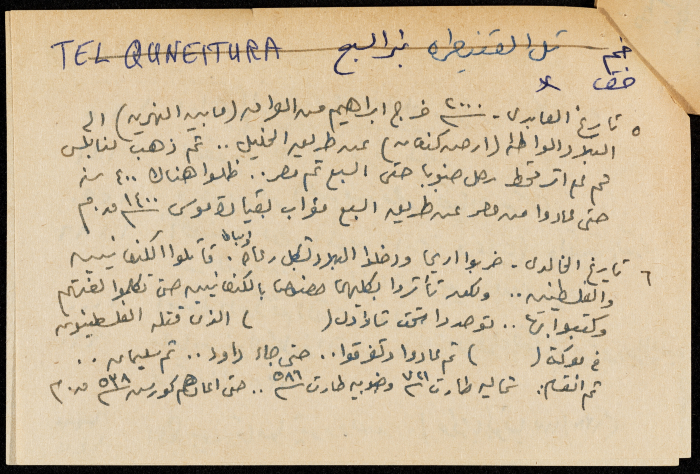 TEL QUNEITURA تل القنيطرة بئر السبع
٥ تاريخ العابدي - ٢٠٠٠ خرج ابراهيم من العراق (ما بين النهرين) الى
البلاد الواطئة (ارض كنعان) عن طريق الخليل .. ثم ذهب لنابلس
ثم على اثر قحط رحل جنوبا حتى السبع ثم مصر .. ظلوا هناك ٤٠٠ سنة
حتى عادوا من مصر عن طريق السبع مؤاب بقيادة موسى ١٤٠٠ ق.م
٦ تاريخ الخالدي - ضربوا اريحا ودخلوا البلاد لكل رعاة . قاتلوا الكنعانيين
والفلسطينيين .. ولكن تأثروا بكليهما خصوصا بالكنعانيين حتى تكلموا لغتهم
وكتبوا بها .. توحدوا تحت شاؤول ( ) الذي قتله الفلسطينيون
في معركة ( ) ثم عادوا وتفرقوا .. حتى جاء داود .. ثم سليمان ..
ثم انقسام : شمالية طارت ٧٢١ وجنوبية طارت ٥٨٦ .. حتى اعادهم كورش ٥٣٨ ق.م